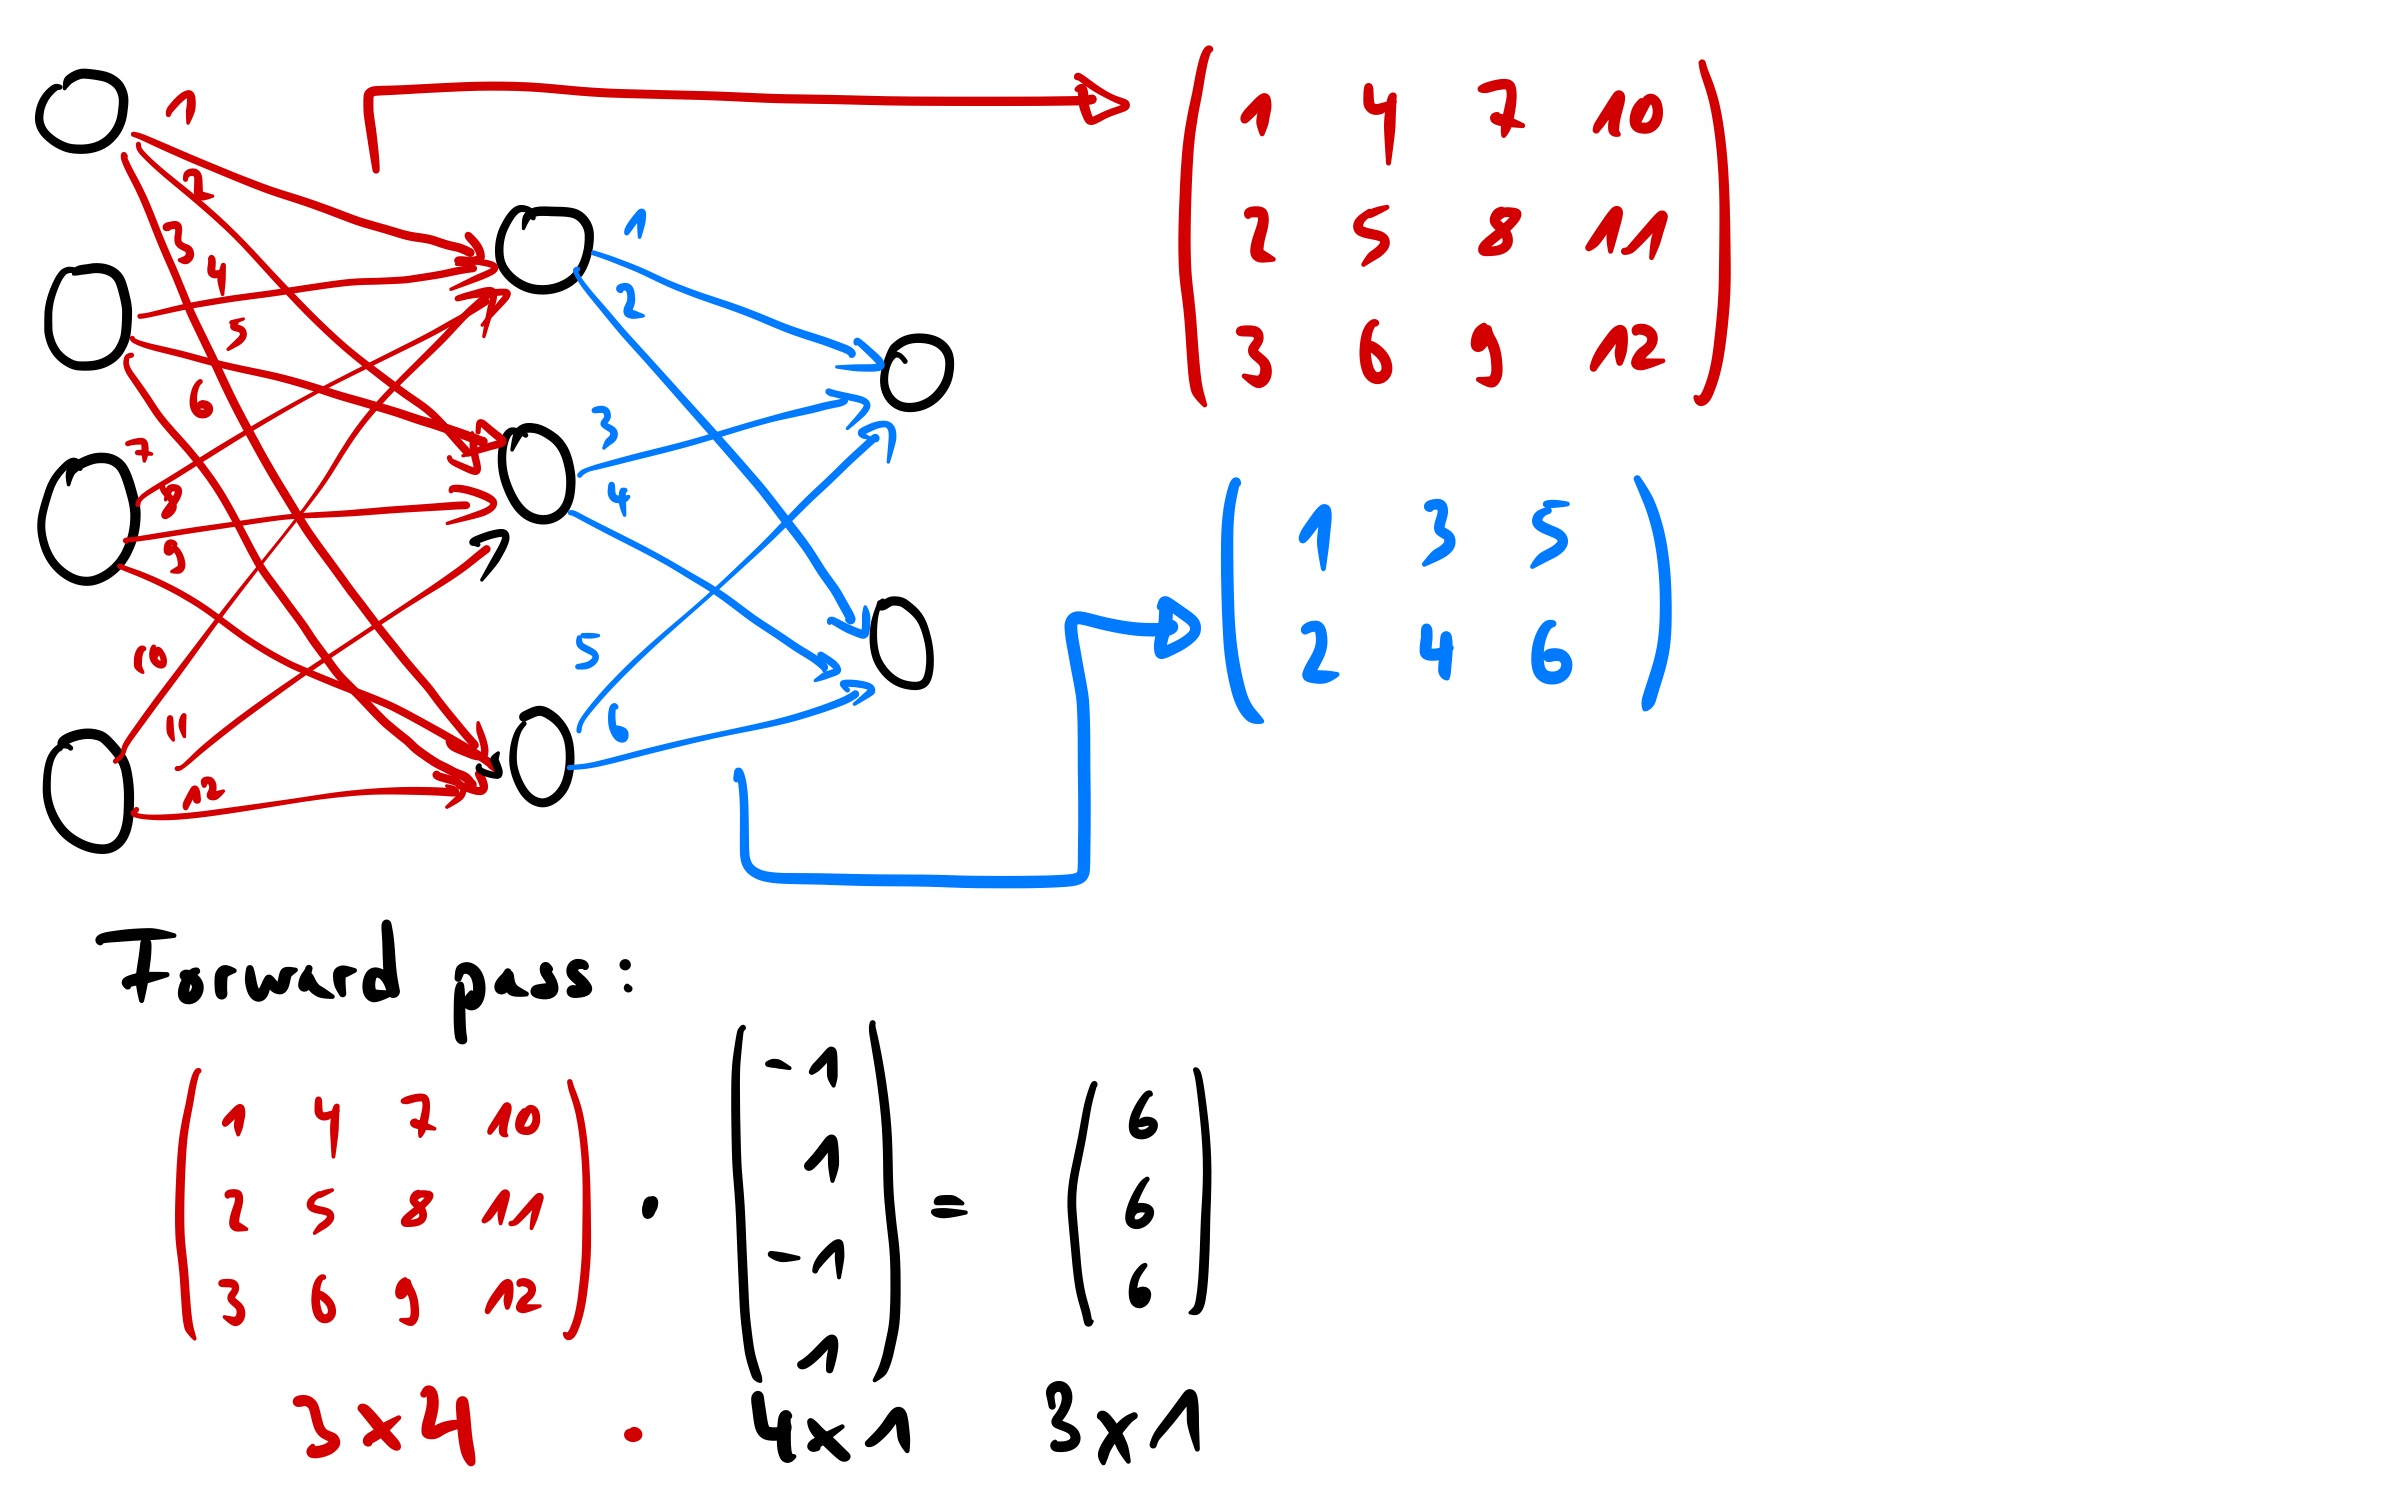 1
2
3
4
5
6
7
8
9
10
11
12
1
2
3
4
5
6
1 4 7 10
2 5 8 11
3 6 9 12
1 3 5
2 4 6
Forward pass:
1 4 7 10
2 5 8 11
3 6 9 12
·
-1
1
-1
1
=
6
6
6
3x4 · 4x1 3x1